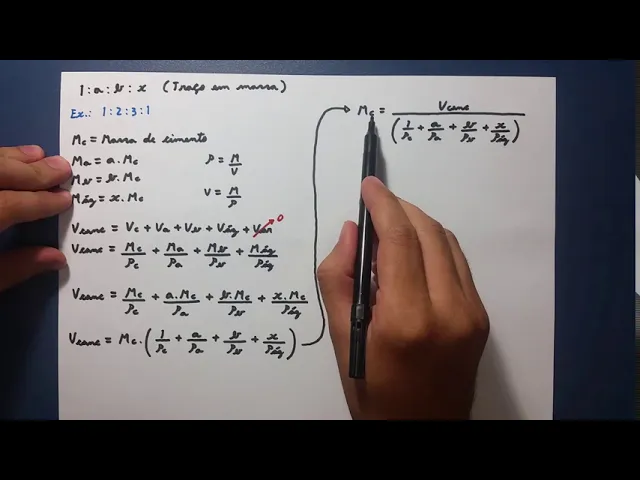 1 : a : b : x (Traço em massa)
Ex.: 1 : 2 : 3 : 1
Mc = Massa de cimento
Ma = a . Mc
Mb = b . Mc
Mág = x . Mc
ρ = M/V
V = M/ρ
Vconc = Vc + Va + Vb + Vág + Var → 0
Vconc = Mc/ρc + Ma/ρa + Mb/ρb + Mág/ρág
Vconc = Mc/ρc + a.Mc/ρa + b.Mc/ρb + x.Mc/ρág
Vconc = Mc . (1/ρc + a/ρa + b/ρb + x/ρág)
Mc = Vconc / (1/ρc + a/ρa + b/ρb + x/ρág)